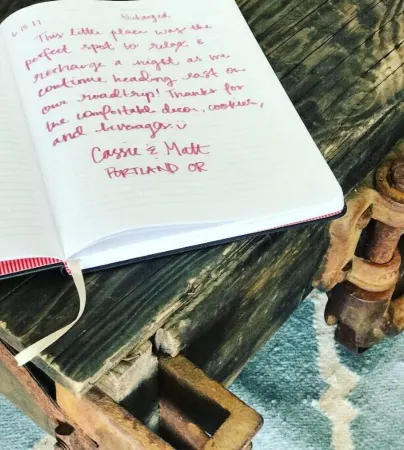 6.10.17
This little place was the
perfect spot to relax &
recharge a night as we
continue heading east on
our roadtrip! Thanks for
the comfortable decor, cookies,
and beverages :)
Cassie & Matt
PORTLAND OR